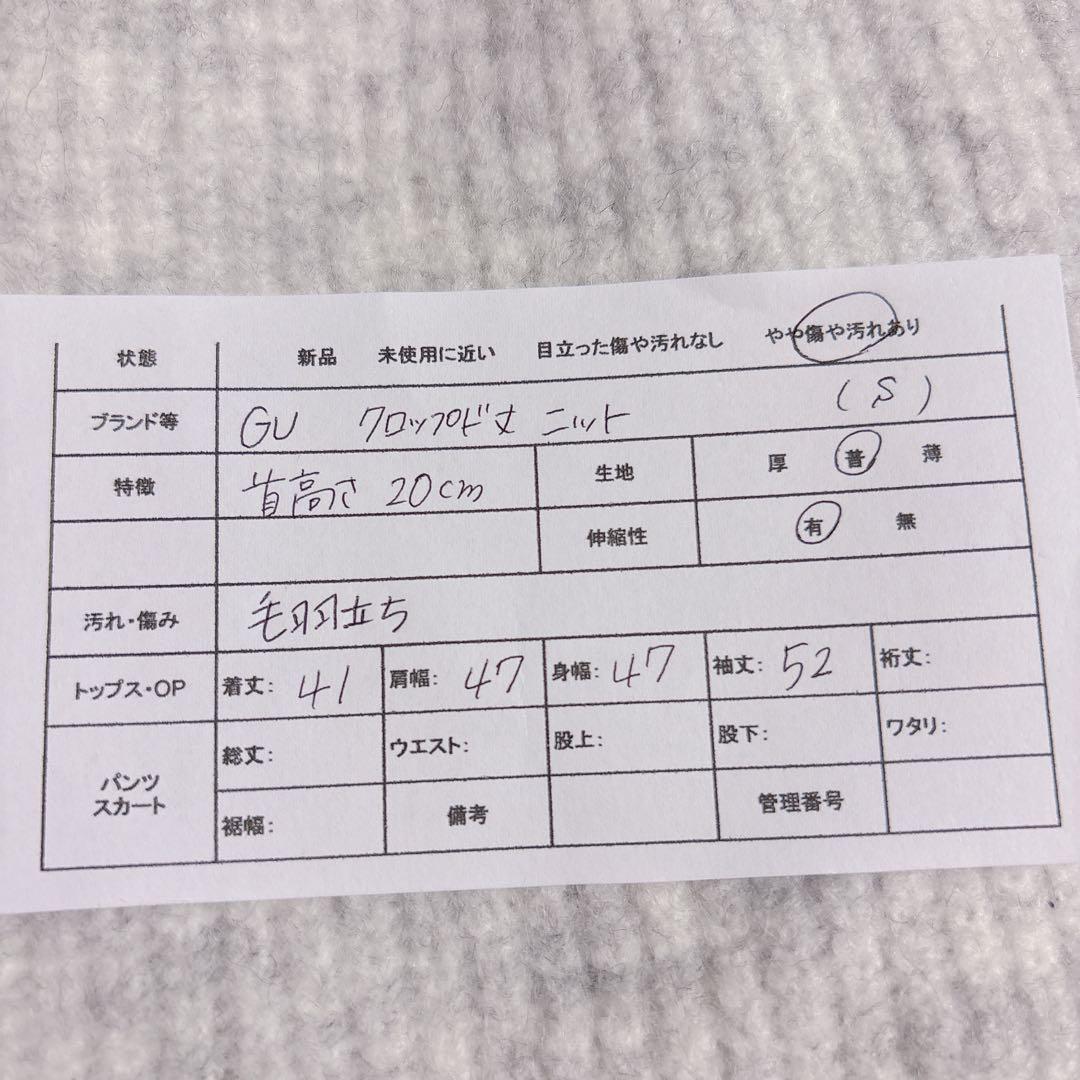 状態 新品 未使用に近い 目立った傷や汚れなし やや傷や汚れあり
ブランド等 GU クロップド丈 ニット (S)
特徴 首高さ 20cm 生地 厚 普 薄
伸縮性 有 無
汚れ・傷み 毛羽立ち
トップス・OP 着丈: 41 肩幅: 47 身幅: 47 袖丈: 52 裄丈:
パンツ スカート
総丈: ウエスト: 股上: 股下: ワタリ:
裾幅: 備考 管理番号